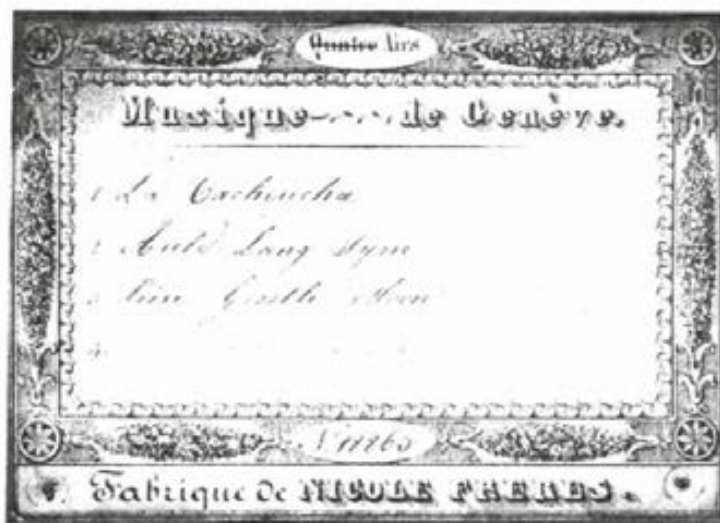 Quatre Airs
Musique de Genève.
1 La Cachucha
2 Auld Lang Syn
3 Gentle Moon
4
Fabrique de NICOLE FRERES.